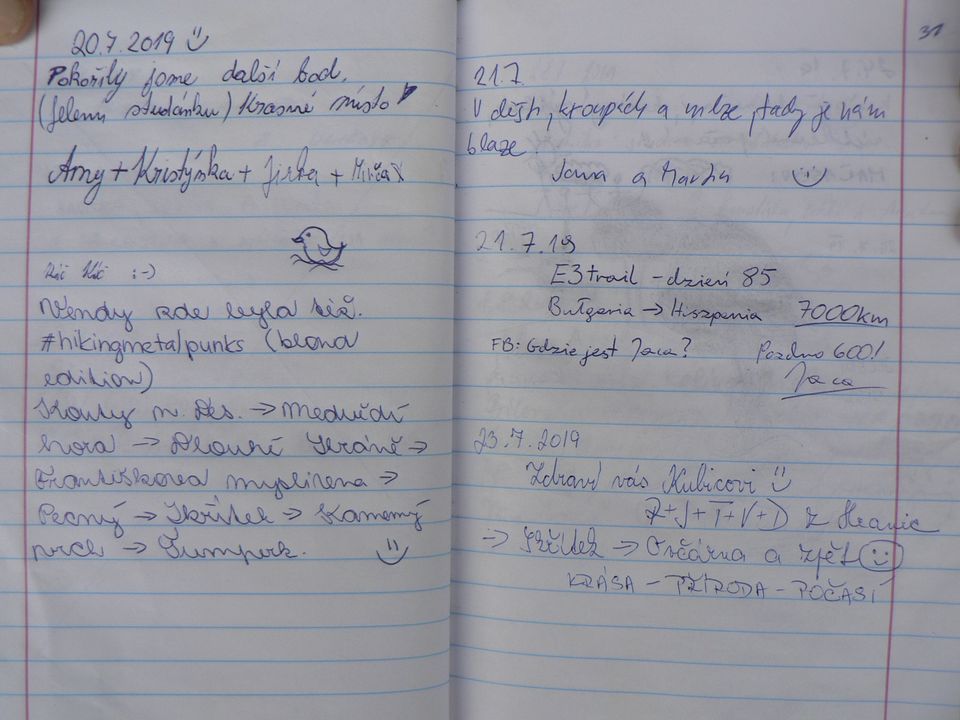 20.7.2019
Pokořily jsme další bod.
(Jelení studánku) Krásné místo
Amy + Kristýnka + Jirka +
Káč Káč :-)
Wendy zde byla též.
#hikingmetalpunks (blond
edition)
Kouty n. Des. → Medvědí
hora → Dlouhé Stráně →
Františkova myslivna →
Pecný → Skřítek → Kamenný
vrch → Šumperk.
31
21.7.
V dešti, kroupách a mlze, tady je nám
blaze
Jana a Martin
21.7.19
E3trail - dzień 85
Bułgaria → Hiszpania 7000km
FB: Gdzie jest Jaca? Pozdro 600!
Jaca
23.7.2019
Zdraví vás Kubicovi
R+J+T+V+D z Hranic
→ Skřítek → Ovčárna a zpět
KRÁSA - PŘÍRODA - POČASÍ